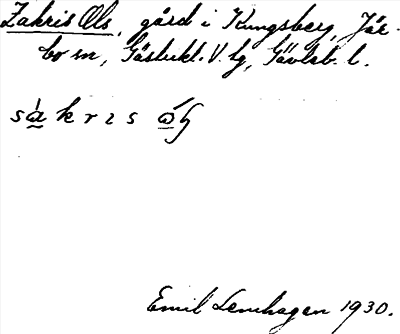 Zakris Ols, gård i Kungsberg, Jär-
bo sn, Gästrikl. V. tg, Gävleb. l.
Emil Lenhagen 1930.